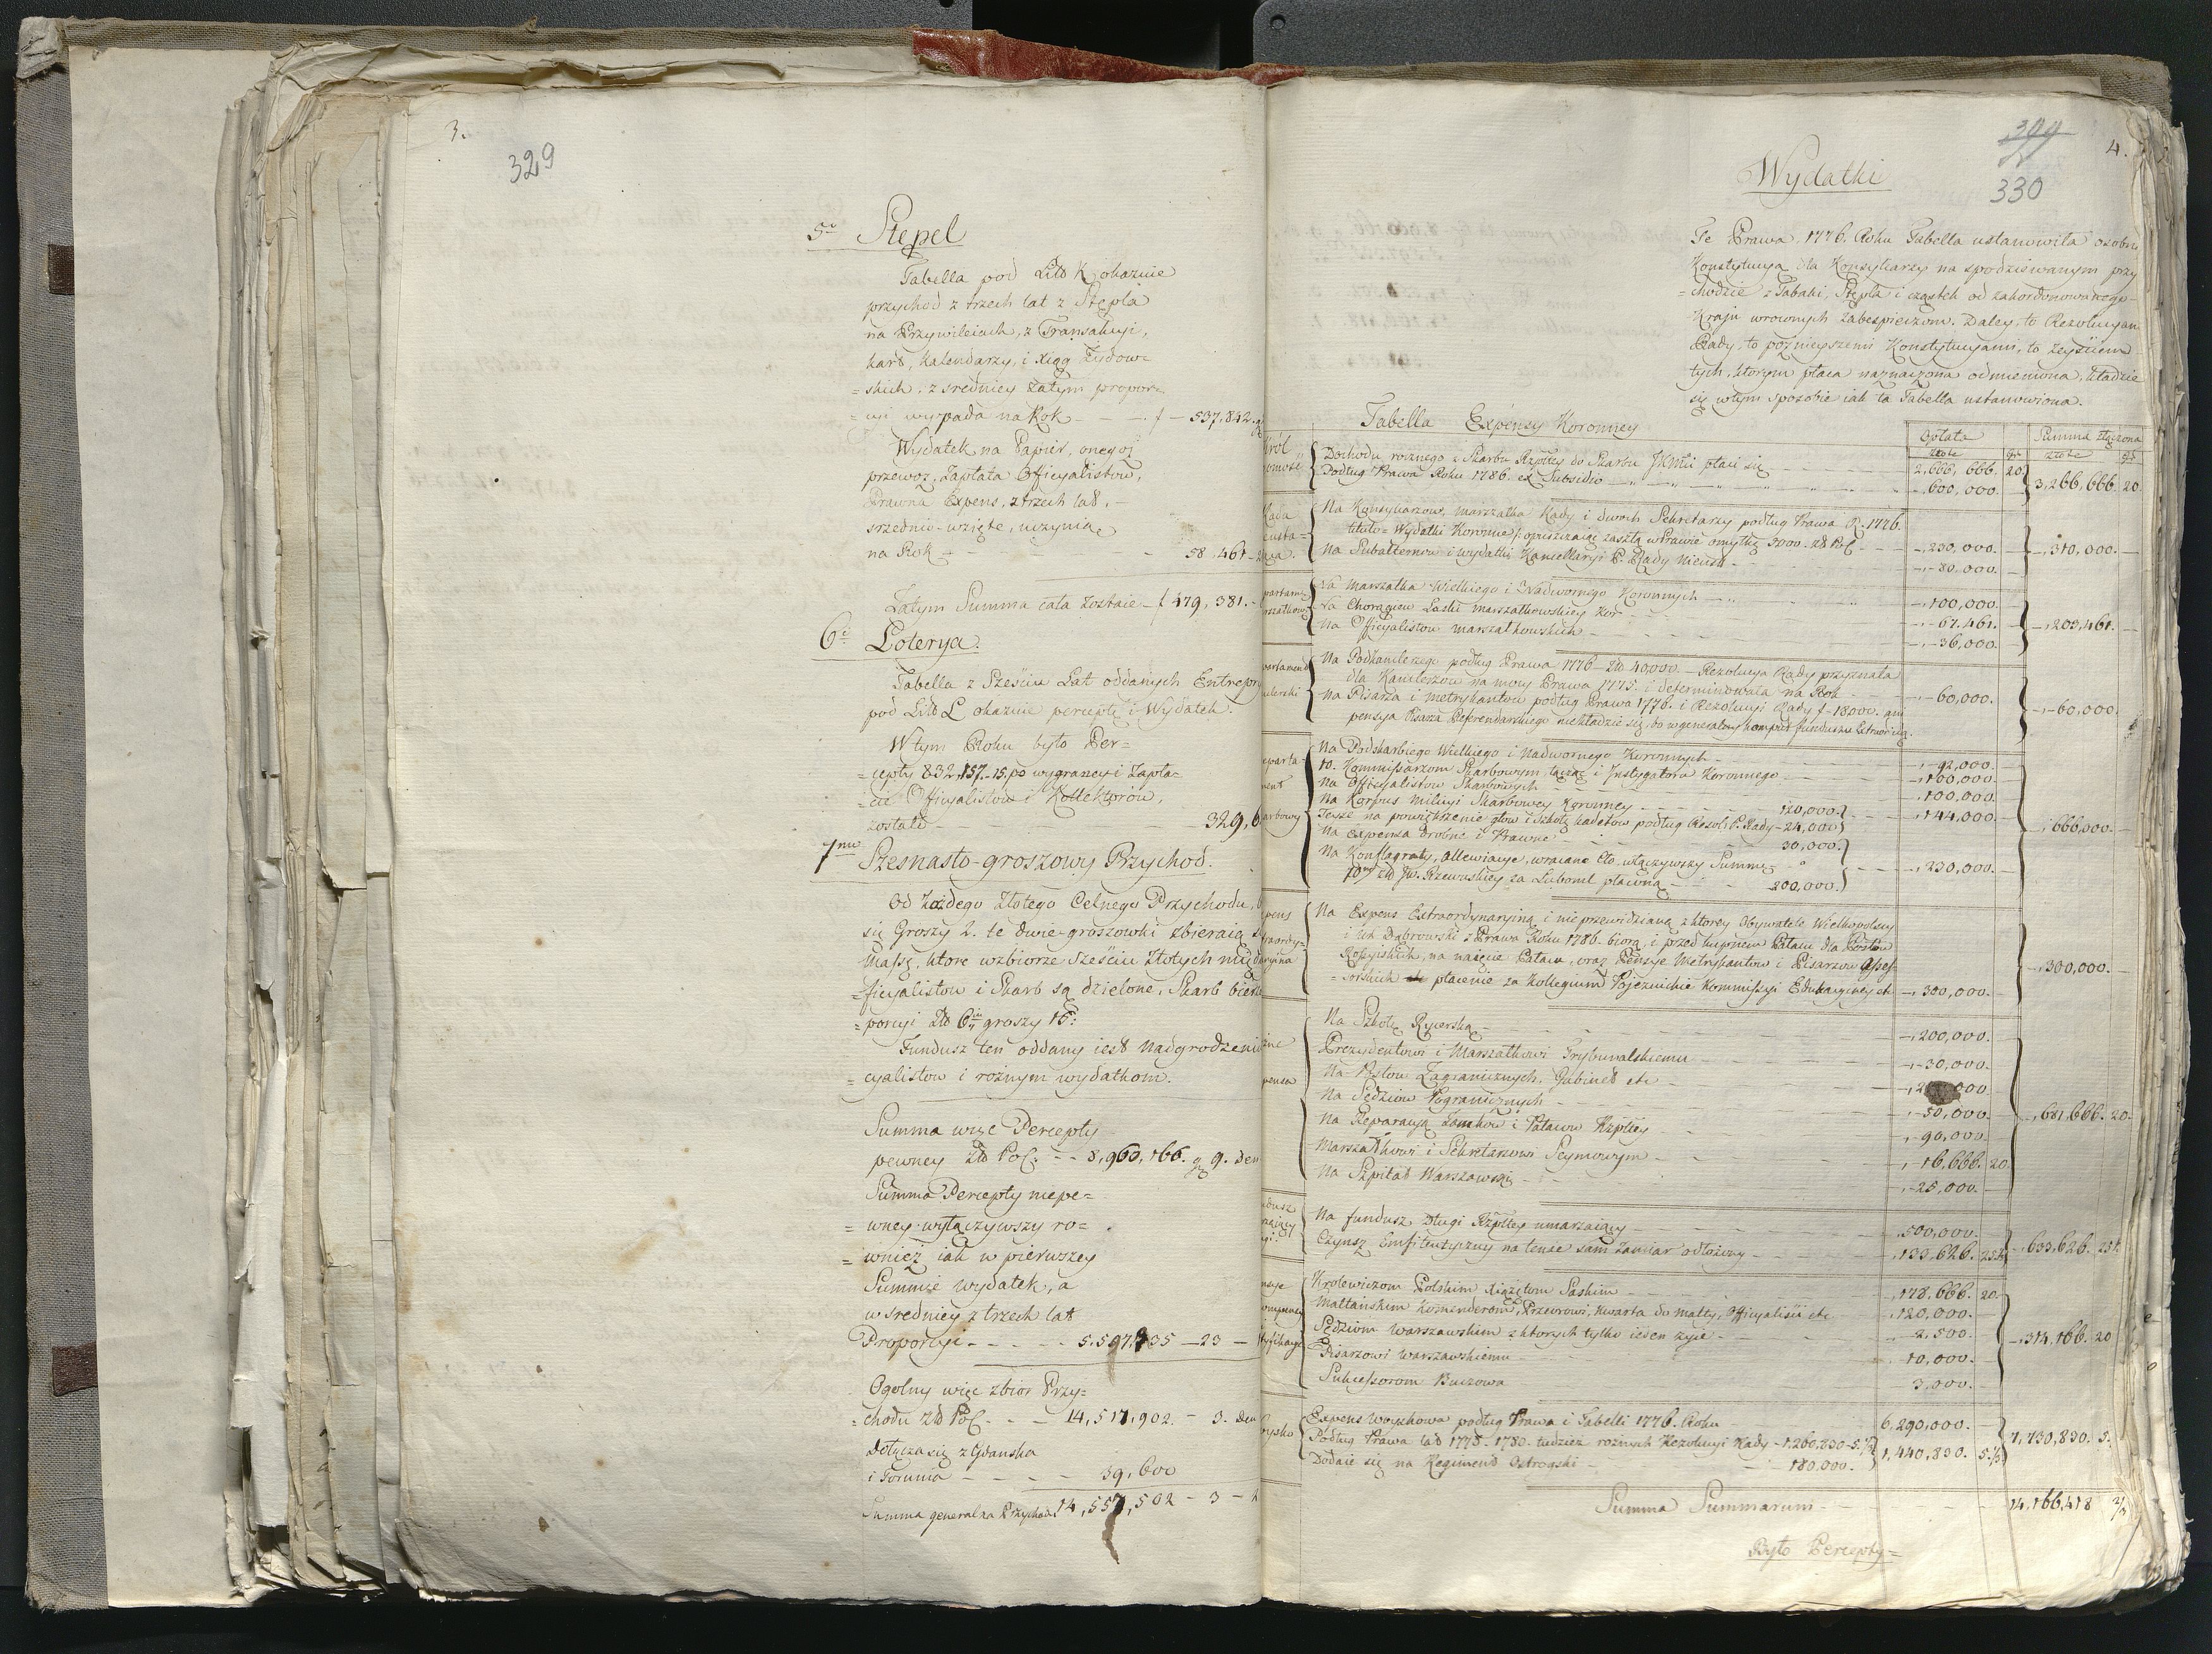 3.
329
5º Stępel
Tabella pod Litt K okazuie
przychod z trzech lat z Stępla
na Przywileiach, z Transakcyi,
kart, kalendarzy, i xiąg Zydow=
=skich, z sredniey zatym propor=
=cyi wypada na Rok - f - 537,842.
Wydatek na Papier, onegoż
przewoz, Zapłata Officyalistow,
Prawna Expens, z trzech lat,
srzednio wzięte, uczynią
na Rok - 58,461
Zatym Summa cała zostaie - f 479,381.
6º Loterya.
Tabella z Sześciu Lat oddanych Entrepr
pod Litt L okazuie perceptę i Wydatek.
W tym Roku było Per=
=cepty 832,157.-15. po wygraney i zapła=
=cie Officyalistow i Kollektorow,
zostało - 329,6
7mo Szesnasto-groszowy Przychod.
Od każdego złotego Celnego Przychodu,
się Groszy 2. te dwie-groszowki zbieraią
Massę, ktore w zbiorze sześciu złotych
=ficyalistow i Skarb są dzielone, Skarb bierze
=porcyi Zło 6ciu groszy 16:
Fundusz ten oddany iest Nadgrodzeni
=cyalistow i rożnym wydatkom.
Summa więc Percepty
pewney Zło Pol: - 8,960,166. g 9. den
Summa Percepty niepe=
=wney wyłączywszy ro=
=wnież iak w pierwszey
Summie wydatek, a
w sredniey z trzech lat
Proporcyi - 5,597,735 - 23 -
Ogolny więc zbior Przy=
=chodu Zło Pol - 14,517,902. - 3. den
Dołącza się z Gdanska
i Torunia - 39,600
Summa generalna Przychodu 14,557,502 - 3 -
399
4.
330
Wydatki
Te Prawa 1776. Roku Tabella ustanowiła osobna
Konstytucya dla Konsyliarzy na spodziewanym przy
=chodzie z Tabaki, Stępla i cząstek od zakordonowanego
Kraju wrownych zabespieczon. Daley, to Rezolucyam
Rady, to poźnieyszemi Konstytucyami, to zeyściem
tych, ktorym płaca naznaczona odmieniona, kładzie
się w tym sposobie iak ta Tabella ustanowiona.
Tabella Expensy Koronney
Opłata Summa złączona
złote gr złote gr
Dochodu rocznego z Skarbu Rzpltey do Skarbu JKMci płaci się - 2,666,666. 20
Podług Prawa Roku 1786. ex Subsidio - 600,000. 3,266,666. 20.
Na Konsyliarzow, marszałka Rady i dwoch Sekretarzy podług Prawa R. 1776.
titulo= Wydatki Koronne /: opuszczaiąc zaszłą w Prawie omyłkę 3000. zł Pol - 230,000.
Na Subalternow i wydatki Kancellaryi P. Rady Nieust - 80,000. 310,000.
Na Marszałka Wielkiego i Nadwornego Koronnych - 100,000.
Na Chorągiew Laski marszałkowskiey Kor - 67,461. 203,461.
Na Officyalistow marszałkowskich - 36,000.
Na Podkanclerzego podług Prawa 1776 - Zło 40,000. - Rezolucya Rady przyznała
dla Kanclerzow na mocy Prawa 1775. i determinowała na Rok - 60,000.
Na Pisarza i metrykantow podług Prawa 1776. i Rezolucyi Rady f - 18000. ani
pensya Pisarza Referendarskiego niekładzie się, bo w generalny komput funduszu 60,000.
Na Podskarbiego Wielkiego i Nadwornego Koronnych - 92,000.
10. Kommissarzom Skarbowym łącząc i Instygatora Koronnego - 100,000.
Na Officyalistow Skarbowych - 100,000.
Na Korpus milicyi Skarbowey Koronney - 120,000.
Teyże na powiększenie głow i szkołę kadetow podług Rezol: P. Rady - 24,000 144,000. 666,000.
Na Expensa drobne i Prawne - 30,000.
Na Konflagraty, Allewiacye, wracane Cło włączywszy Summę
Zło Jw. Rzewuskiey za Luboml płatną - 200,000. 230,000.
Na Expens Extraordynaryiną i nieprzewidzianą z ktorey Obywatele Wielkopolscy
i Ur. Dąbrowski z Prawa Roku 1786. biorą, i przed kupnem Pałacu dla Posłow
Rossyiskich, na naięcie Pałacu, oraz Pensye Metrykantow i Pisarzow Asses=
=sorskich płacenie za Kollegium Pojezuickie Kommissyi Edukacyiney etc - 300,000. 300,000.
Na Szkołę Rycerską - 200,000.
Prezydentowi i Marszałkowi Trybunalskiemu - 30,000.
Na Posłow Zagranicznych, Gabinet etc
Na Sędziow Pogranicznych - 50,000. 681,666. 20.
Na Reparacyą Zamkow i Pałacow Rzpltey - 90,000.
Marszałkowi i Sekretarzowi Seymowym - 16,666. 20.
Na Szpital Warszawski - 25,000.
Na fundusz Długi Rzpltey umarzaiący - 500,000.
Czynsz Emfiteutyczny na tenże sam zamiar odłożony - 133,626. 25 633,626. 25
Krolewiczom Polskim xiążętom Saskim - 178,666. 20
Maltańskim Komenderom, Przeorowi, kwarta do malty, Officyalisći etc - 120,000.
Sędziom Warszawskim z ktorych tylko ieden żyie - 2,500. 314,166. 20
Pisarzowi Warszawskiemu - 10,000.
Sukcessorom Buczowa - 3,000.
Expens woyskowa podług Prawa i Tabelli 1776. Roku - 6,290,000.
Podług Prawa lat 1778. 1780. tudzież rożnych Rezolucyi Rady - 1,260,830 - 5.⅓ 7,730,830. 5.
Dodaie się na Regiment Ostrogski - 180,000. 1,440,830. 5.⅓
Summa Summarum - 14,166,418 ⅔
Było Percepty=